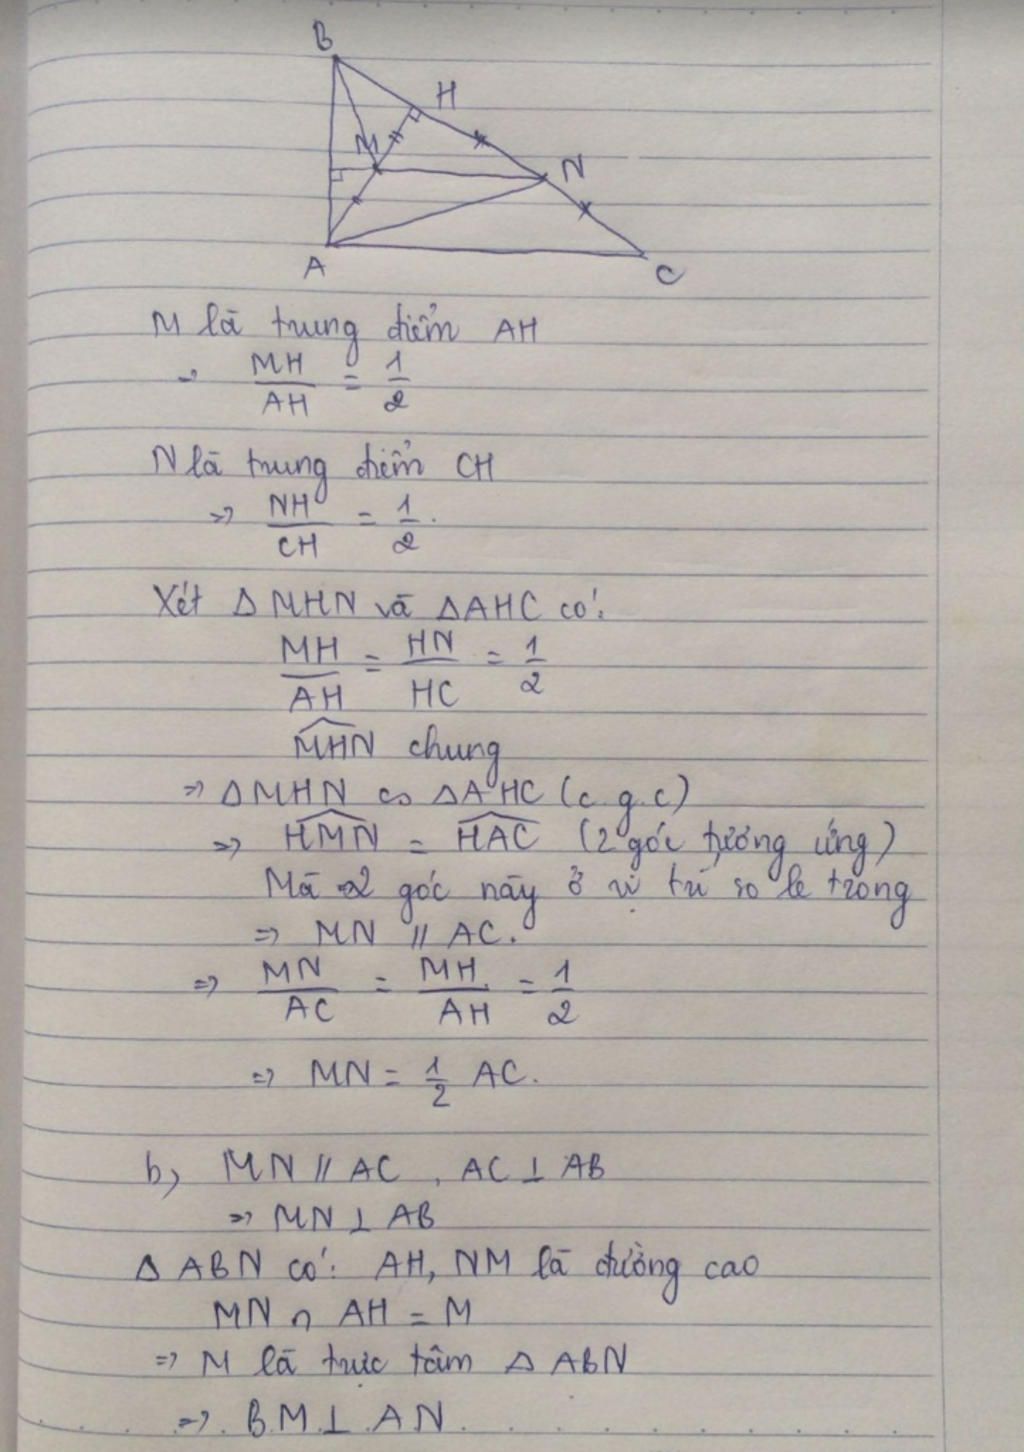 B
H
M
N
A
C
M là trung điểm AH
→ MH/AH = 1/2
N là trung điểm CH
=> NH/CH = 1/2.
Xét Δ MHN và ΔAHC có:
MH/AH = HN/HC = 1/2
\widehat{MHN} chung
=> ΔMHN ∽ ΔAHC (c.g.c)
=> \widehat{HMN} = \widehat{HAC} (2 góc tương ứng)
Mà 2 góc này ở vị trí so le trong
=> MN // AC.
=> MN/AC = MH/AH = 1/2
=> MN = 1/2 AC.
b, MN // AC, AC ⊥ AB
=> MN ⊥ AB
Δ ABN có: AH, NM là đường cao
MN ∩ AH = M
=> M là trực tâm Δ ABN
=> BM ⊥ AN.